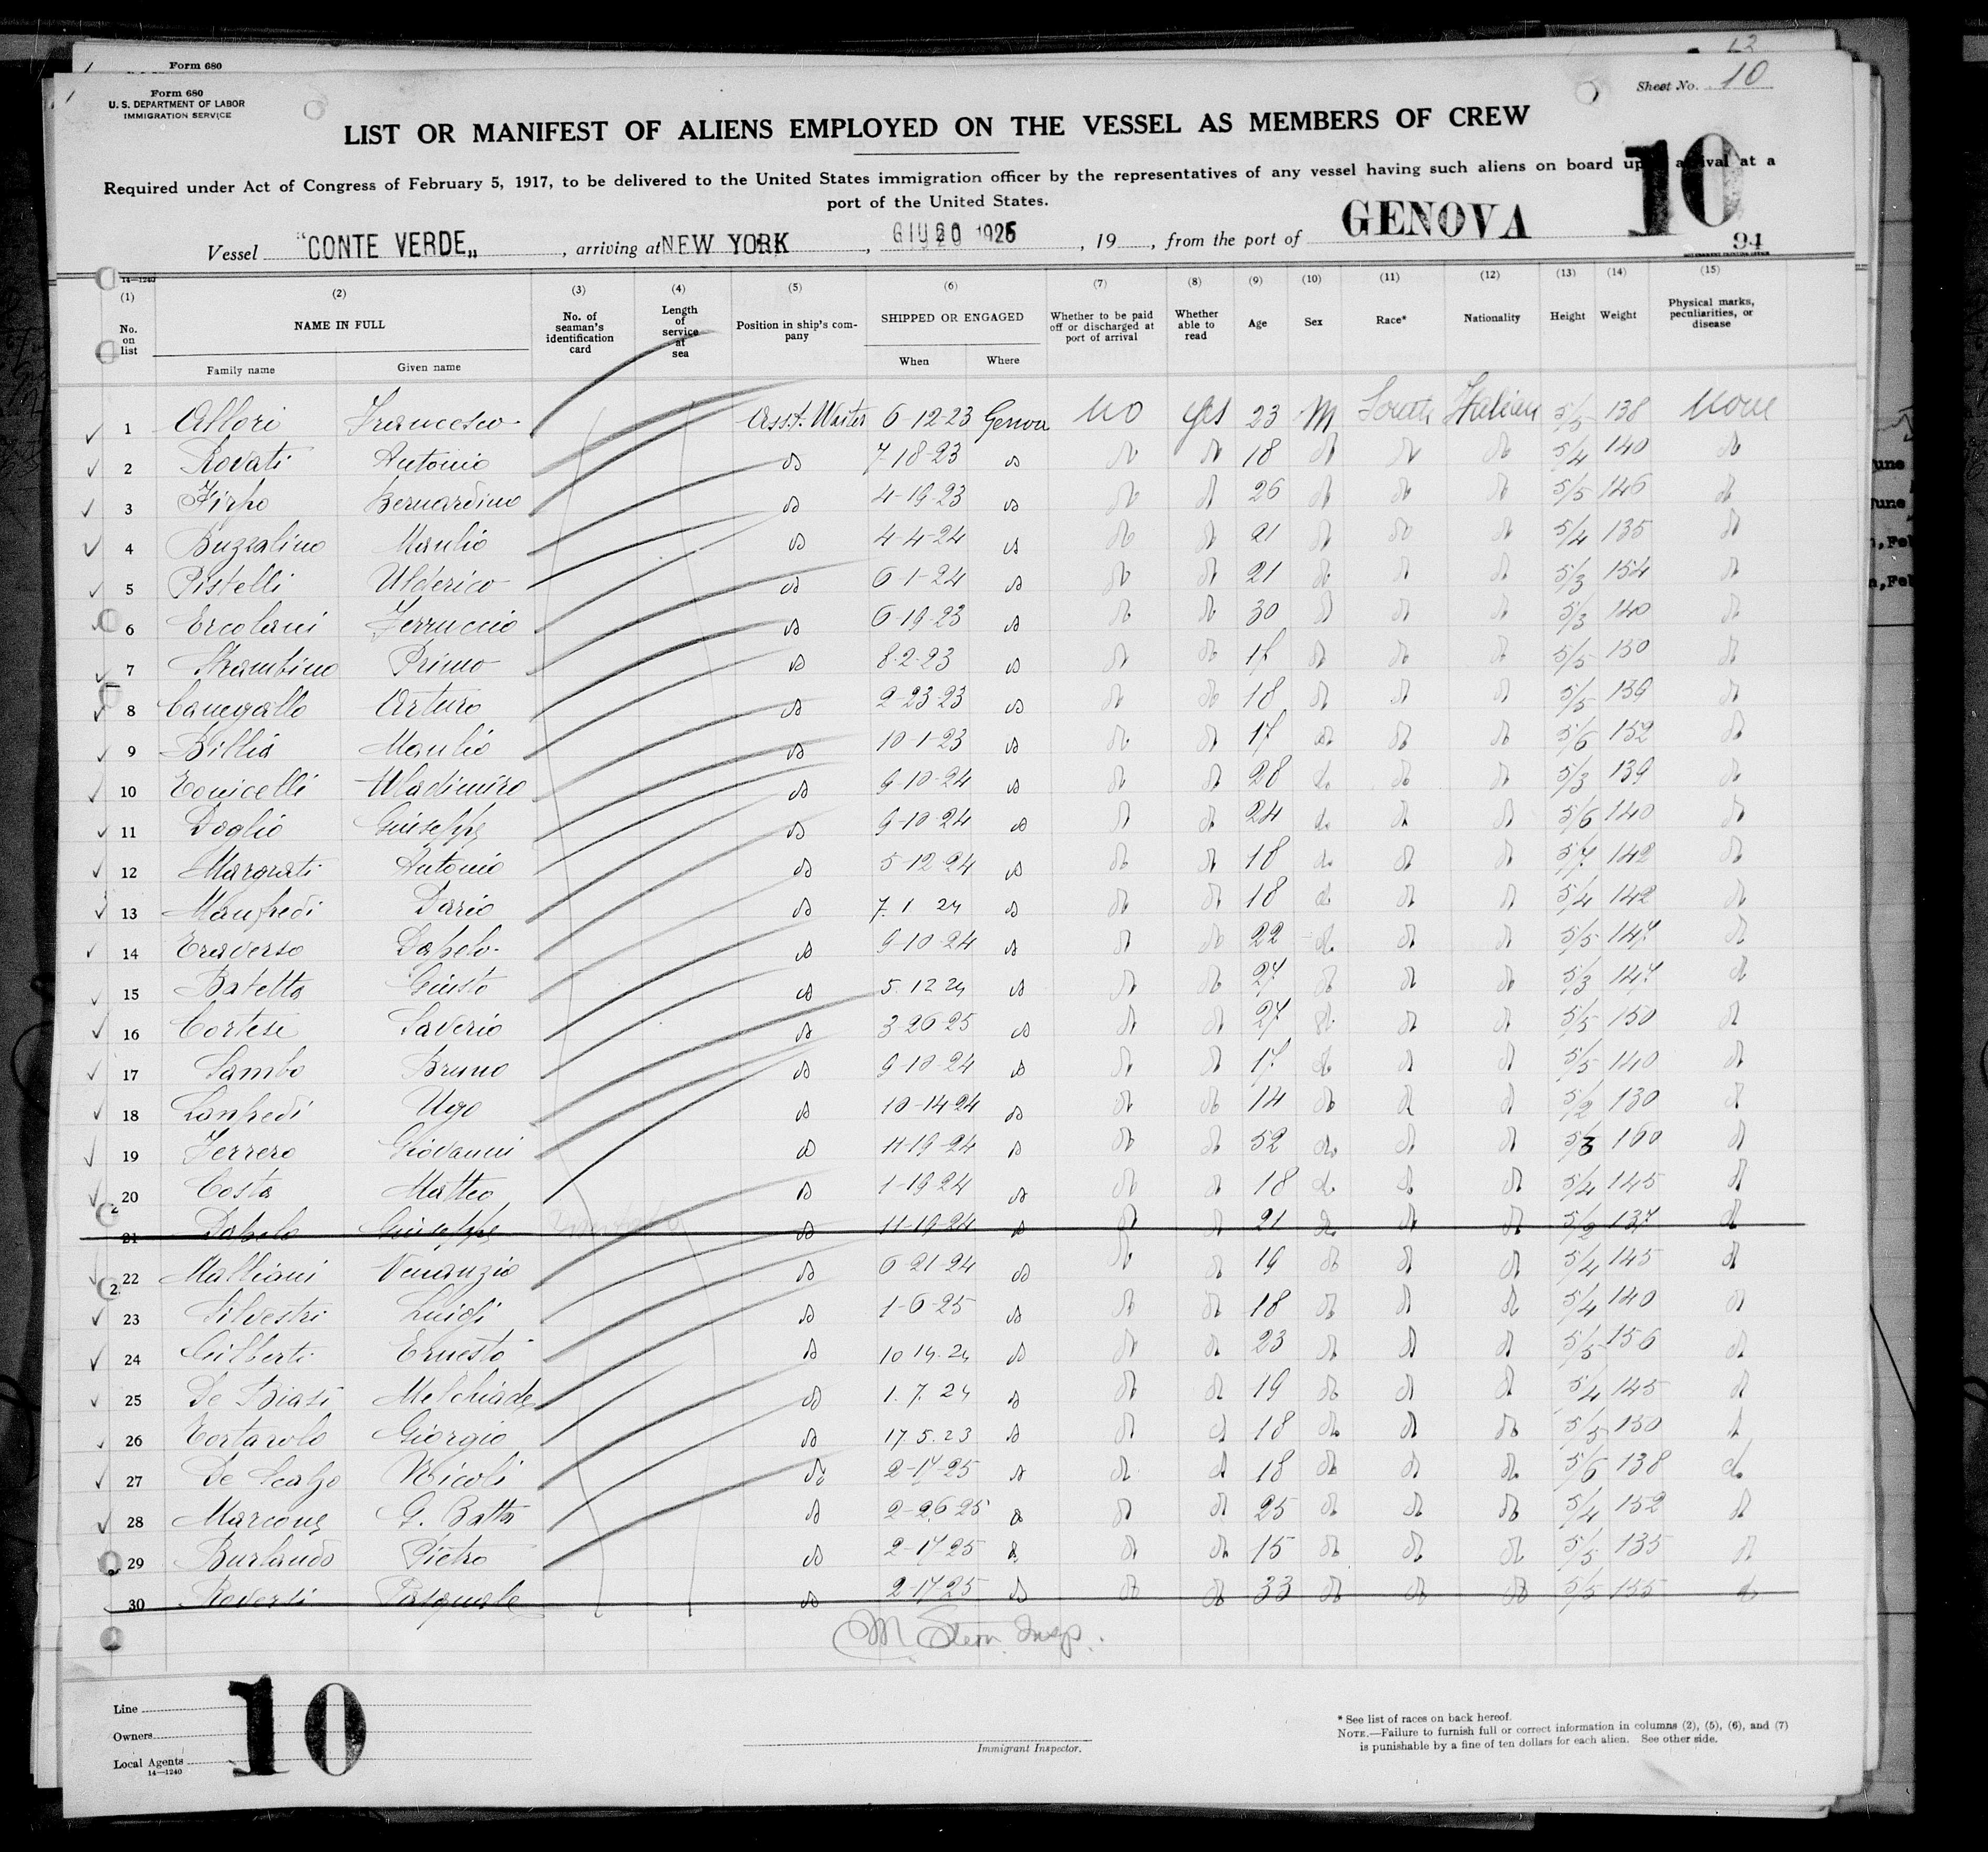 Form 680
Form 680
U. S. DEPARTMENT OF LABOR
IMMIGRATION SERVICE
Sheet No. 10
LIST OR MANIFEST OF ALIENS EMPLOYED ON THE VESSEL AS MEMBERS OF CREW
Required under Act of Congress of February 5, 1917, to be delivered to the United States immigration officer by the representatives of any vessel having such aliens on board upon arrival at a
port of the United States.
10
Vessel "CONTE VERDE„ , arriving at NEW YORK , GIU 1925 , 19 , from the port of GENOVA
94
14—1240
(1) (2) (3) (4) (5) (6) (7) (8) (9) (10) (11) (12) (13) (14) (15)
No. on list NAME IN FULL Family name Given name No. of seaman's identification card Length of service at sea Position in ship's company SHIPPED OR ENGAGED When Where Whether to be paid off or discharged at port of arrival Whether able to read Age Sex Race* Nationality Height Weight Physical marks, peculiarities, or disease
1 Allori Francesco Asst. Waiter 6 12-23 Genova No yes 23 M South Italian 5/5 138 None
2 Rovati Antonio do 7 18-23 do do do 18 do do do 5/4 140 do
3 Firpo Bernardino do 4-19-23 do do do 26 do do do 5/5 146 do
4 Buzzalino Manlio do 4-4-24 do do do 21 do do do 5/4 135 do
5 Pistelli Ulderico do 6 1-24 do do do 21 do do do 5/3 154 do
6 Ercolani Ferruccio do 6-19-23 do do do 30 do do do 5/3 140 do
7 Primo do 8-2-23 do do do 17 do do do 5/5 150 do
8 Canegallo Arturo do 2-23-23 do do do 18 do do do 5/5 139 do
9 Billia Manlio do 10-1-23 do do do 17 do do do 5/6 152 do
10 Tonicelli Wladimiro do 9-10-24 do do do 28 do do do 5/3 139 do
11 Doglio Giuseppe do 9-10-24 do do do 24 do do do 5/6 140 do
12 Antonio do 5-12-24 do do do 18 do do do 5/7 142 do
13 Manfredi Dario do 7. 1 24 do do do 18 do do do 5/4 142 do
14 Traverso Dapelo do 9-10-24 do do do 22 do do do 5/5 147 do
15 Giusto do 5. 12 24 do do do 27 do do do 5/3 147 do
16 Cortese Saverio do 3-26-25 do do do 27 do do do 5/5 150 do
17 Sambo Bruno do 9-10-24 do do do 17 do do do 5/5 140 do
18 Lanfredi Ugo do 10-14 24 do do do 14 do do do 5/2 130 do
19 Ferrero Giovanni do 11-19-24 do do do 52 do do do 5/3 160 do
20 Costa Matteo do 1-19 24 do do do 18 do do do 5/4 145 do
21 Dapelo Giuseppe do 11-19-24 do do do 21 do do do 5/2 137 do
22 Malliani Venanzio do 6-21-24 do do do 19 do do do 5/4 145 do
23 Silvestri Luigi do 1-6-25 do do do 18 do do do 5/4 140 do
24 Gilberti Ernesto do 10 14. 24 do do do 23 do do do 5/5 156 do
25 De Biasi Melchiade do 1. 7. 24 do do do 19 do do do 5/4 145 do
26 Tortarolo Giorgio do 17. 5. 23 do do do 18 do do do 5/5 150 do
27 De Scalzo Nicoli do 2-17-25 do do do 18 do do do 5/6 138 do
28 Marcone G. Batta do 2-26-25 do do do 25 do do do 5/4 152 do
29 Burlando Pietro do 2-17 25 do do do 15 do do do 5/5 135 do
30 Roversi Pasquale do 2-17 25 do do do 33 do do do 5/5 155 do
M Stern Insp.
Line
Owners
Local Agents
14—1240
10
Immigrant Inspector.
* See list of races on back hereof.
NOTE.—Failure to furnish full or correct information in columns (2), (5), (6), and (7)
is punishable by a fine of ten dollars for each alien. See other side.